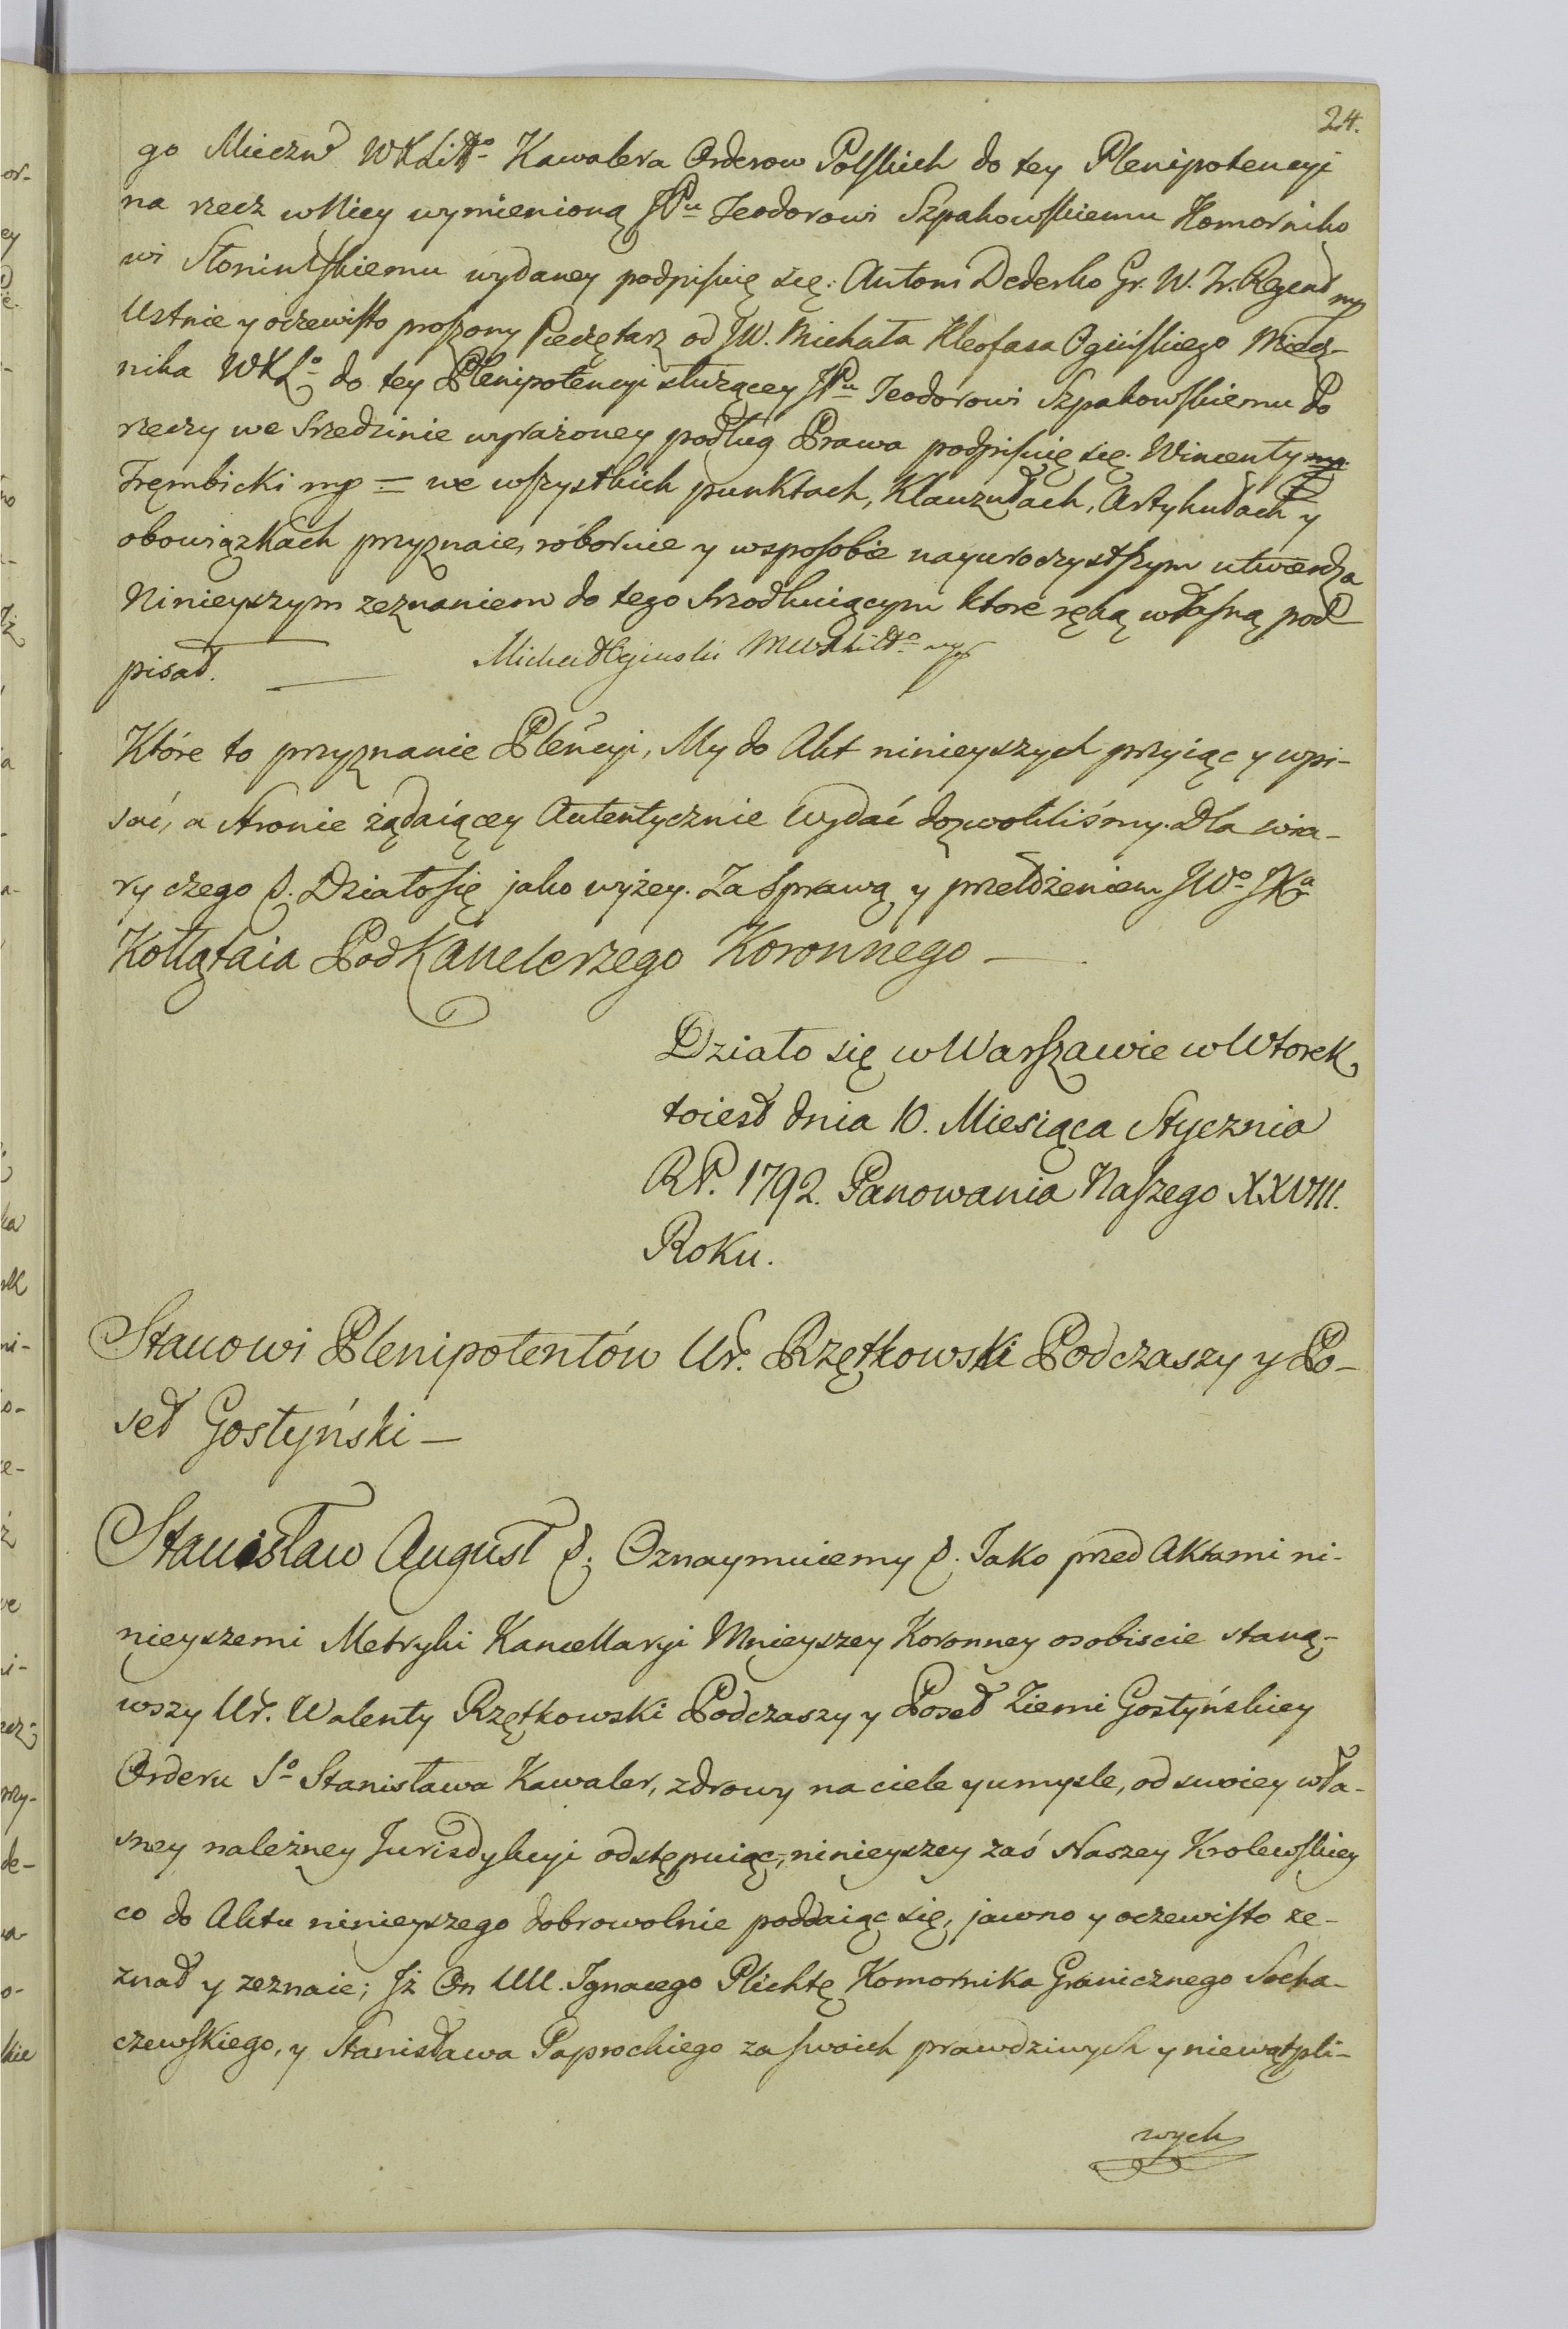 24.
go Mieczn WXLittо Kawalera Orderow Polskich do tey Plenipotencyi
na rzecz w Niey wymienioną JPu Teodorowi Szpakowskiemu Komorniko
wi Słonimskiemu wydaney podpisuię się: Antoni Dederko Gr. W. Tr. Regend mp
Ustnie y oczewisto proszony Pieczętarz od JW. Michała Kleofasa Ogińskiego Miecz-
nika WXLo do tey Plenipotencyi służącey JPu Teodorowi Szpakowskiemu do
rzeczy we srzedzinie wyrażoney podług Prawa podpisuię się. Wincenty
Trębicki mp = we wszystkich punktach, Klauzułach, Artykułach y
obowiązkach przyznaie, roboruie y wsposobie nayuroczystszym utwierdza
Ninieyszym zeznaniem do tego srzodkuiącym ktore ręką własną pod
pisał. — Michał Ogiński MWXLitto mp
Które to przyznanie Pleńcyi, My do Akt ninieyszych przyiąc y wpi-
sać, a stronie żądaiącey Autentycznie wydać dozwoliliśmy. Dla wia-
ry czego &. Działo się jako wyżey. Za sprawą y przełożeniem JWo JXa
Kołłątaia PodKanclerzego Koronnego —
Działo się w Warszawie w Wtorek
toiest dnia 10. Miesiąca Stycznia
RP. 1792. Panowania Naszego XXVIII.
Roku.
Stanowi Plenipotentów Ur. Rzętkowski Podczaszy y Po-
seł Gostyński —
Stanisław August &. Oznaymuiemy &. Jako przed Aktami ni-
nieyszemi Metryki Kancellaryi Mnieyszey Koronney osobiscie staną-
wszy Ur. Walenty Rzętkowski Podczaszy y Poseł Ziemi Gostyńskiey
Orderu So Stanisława Kawaler, zdrowy na ciele y umysle, od swoiey wła-
sney należney Jurisdykcyi odstępuiąc, ninieyszey zaś Naszey Krolewskiey
co do Aktu ninieyszego dobrowolnie poddaiąc się, jawno y oczewisto ze-
znał y zeznaie; Jż On UU. Ignacego Plichtę Komornika Granicznego Socha-
czewskiego, y Stanisława Paprockiego za swoich prawdziwych y niewątpli-
wych